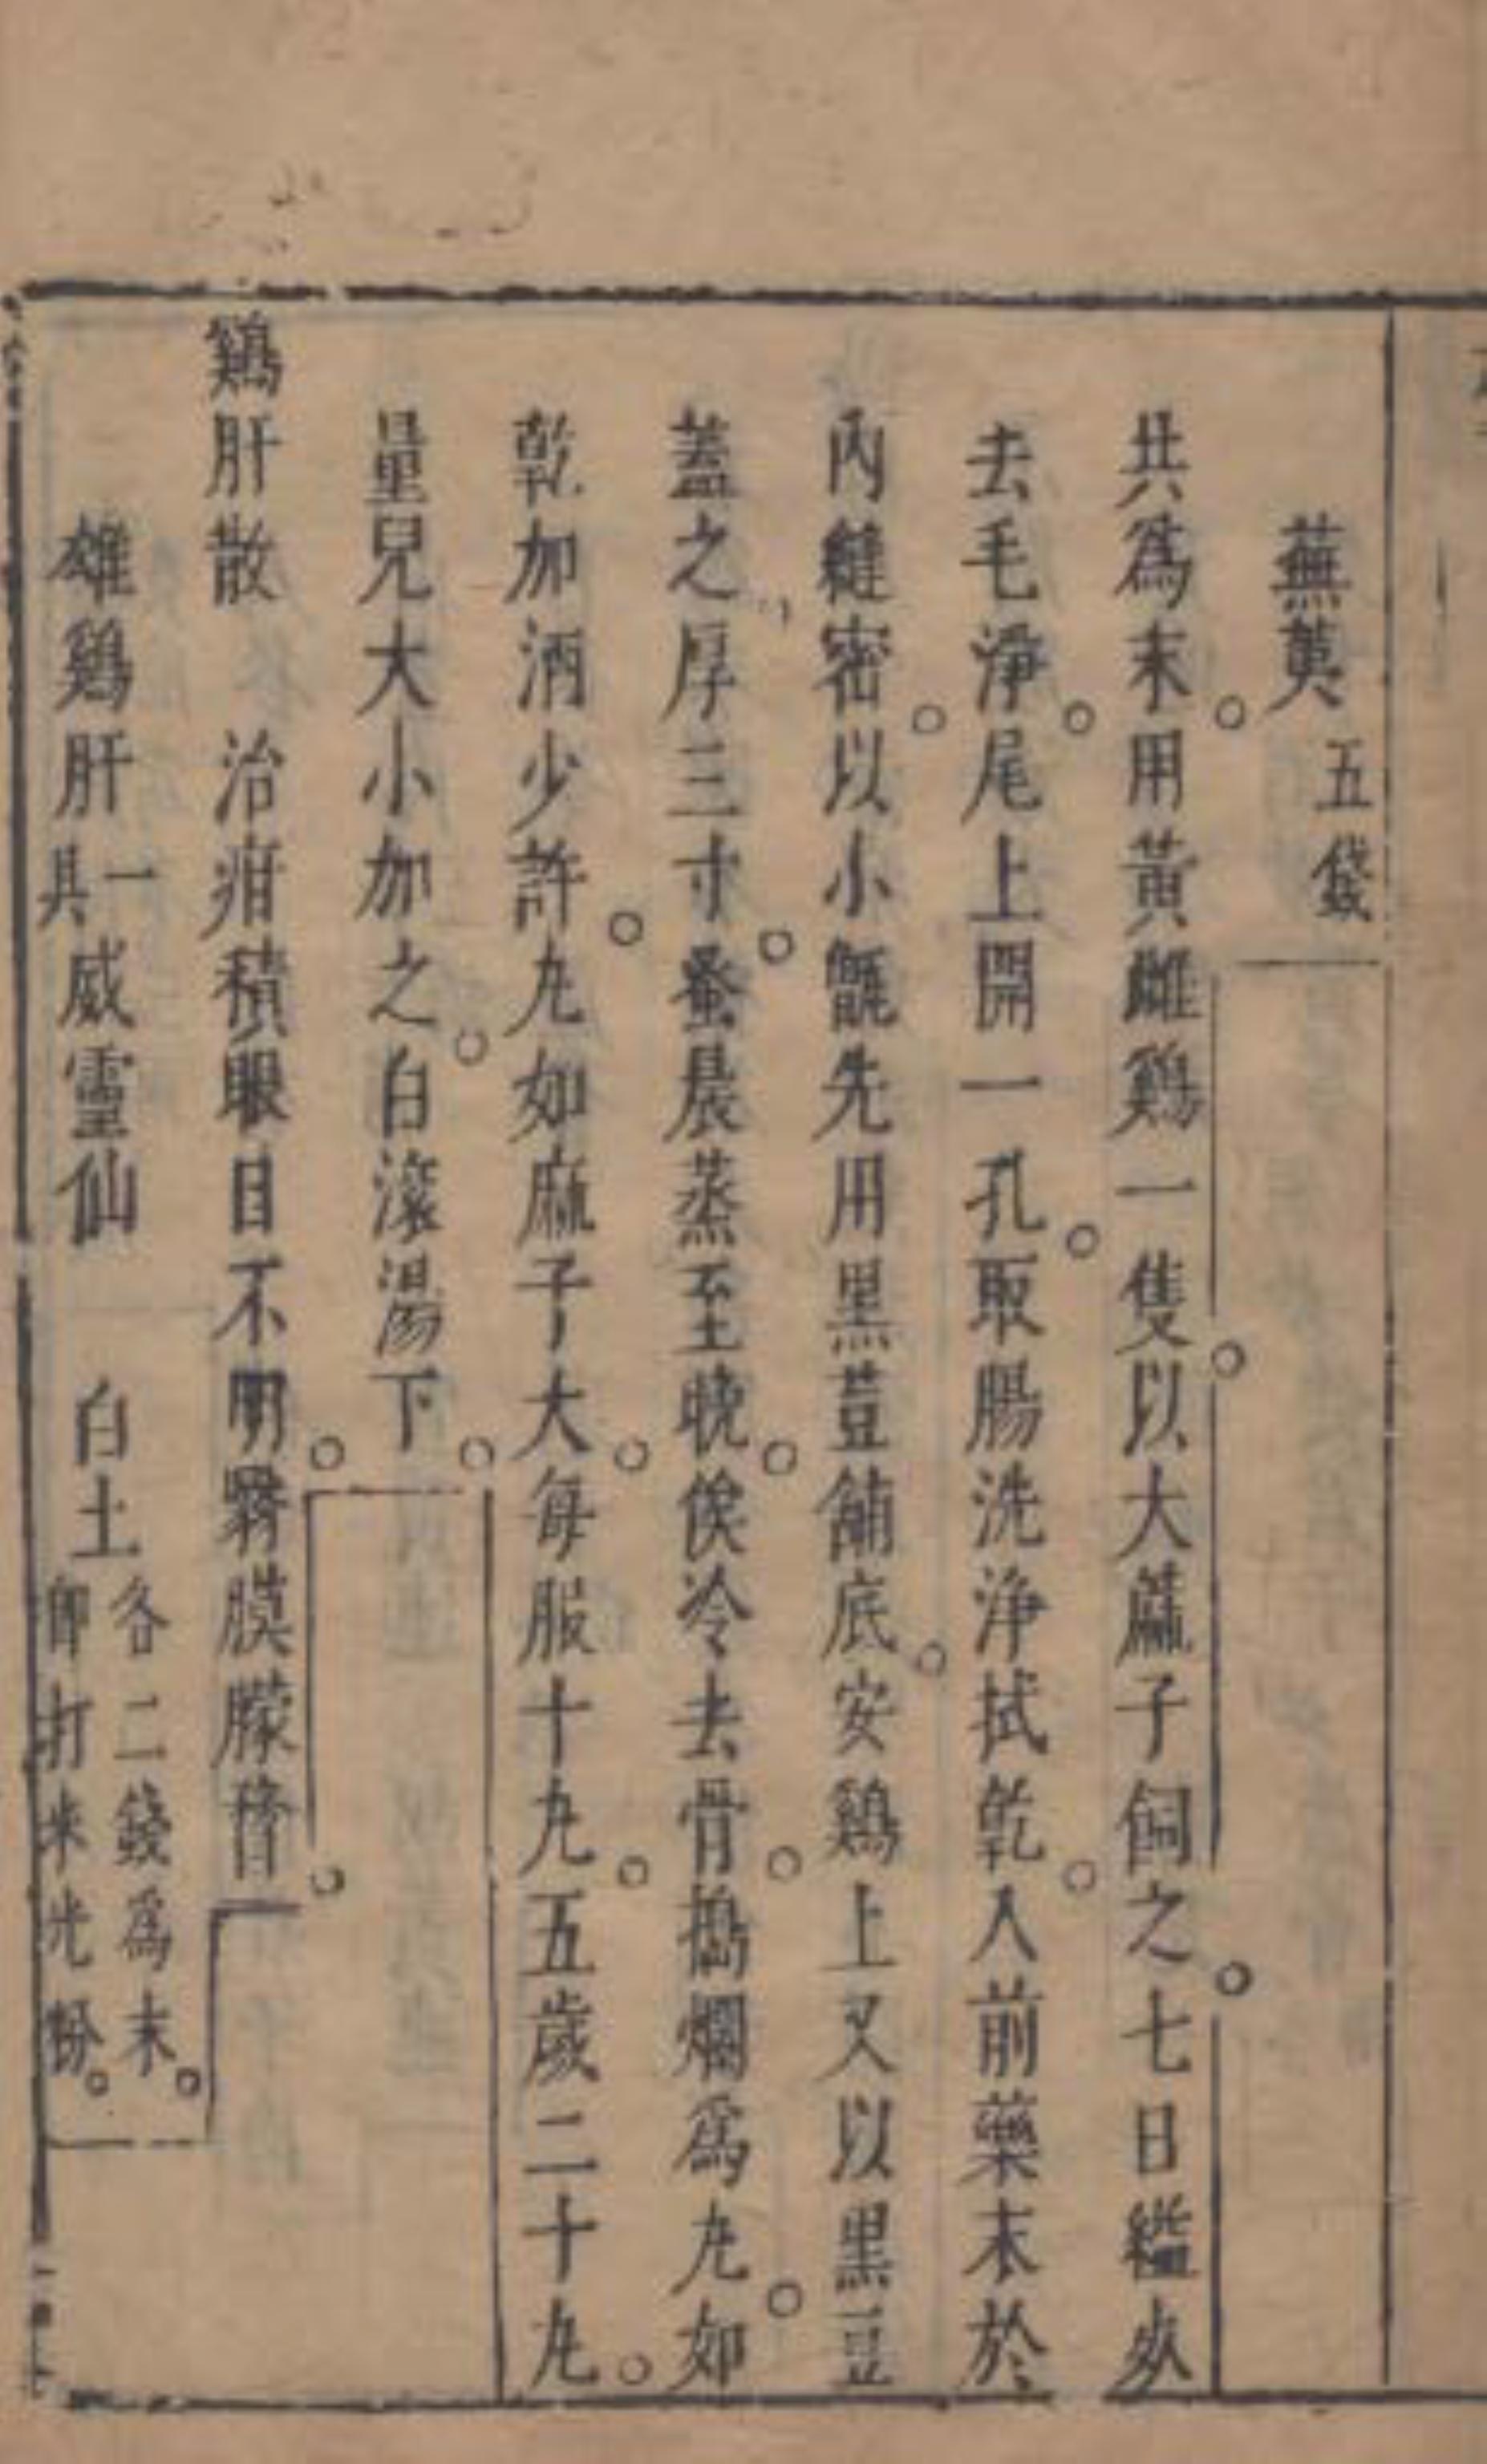 蕪荑五錢
共爲末。用黃雌鷄一隻。以大蔴子飼之。七日縊死
去毛淨。尾上開一孔。取腸洗浄拭乾。入前藥末於
內縫密。以小甑先用黑荳鋪底。安鷄上又以黑豆
蓋之厚三寸。蚤晨蒸至晚。俟冷去骨。搗爛爲丸。如
乾加酒少許。丸如麻子大。每服十丸。五歲二十丸。
量兒大小加之。白滚湯下。
鷄肝散　治疳積眼目不明。翳膜朦瞽。
雄鷄肝一具 威靈仙　白土各二錢爲末。卽打米光粉。